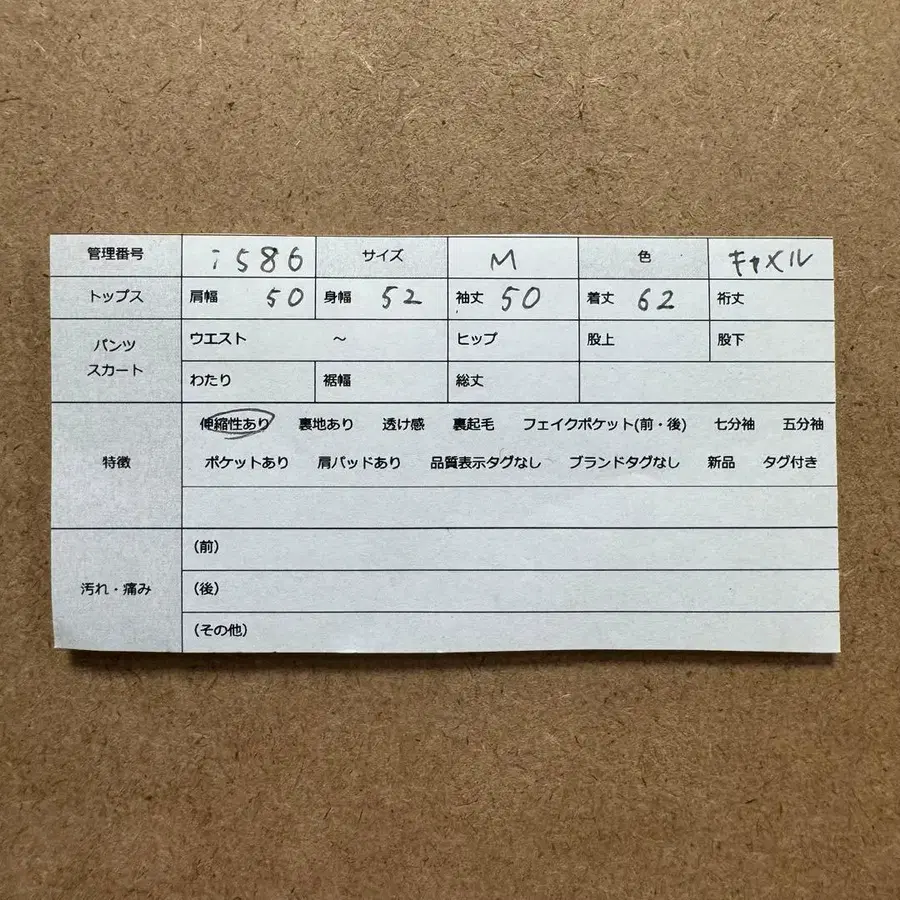 管理番号 i586 サイズ M 色 キャメル
トップス 肩幅 50 身幅 52 袖丈 50 着丈 62 裄丈
パンツ スカート
ウエスト ～ ヒップ 股上 股下
わたり 裾幅 総丈
特徴
伸縮性あり 裏地あり 透け感 裏起毛 フェイクポケット(前・後) 七分袖 五分袖
ポケットあり 肩パッドあり 品質表示タグなし ブランドタグなし 新品 タグ付き
汚れ・痛み
(前)
(後)
(その他)